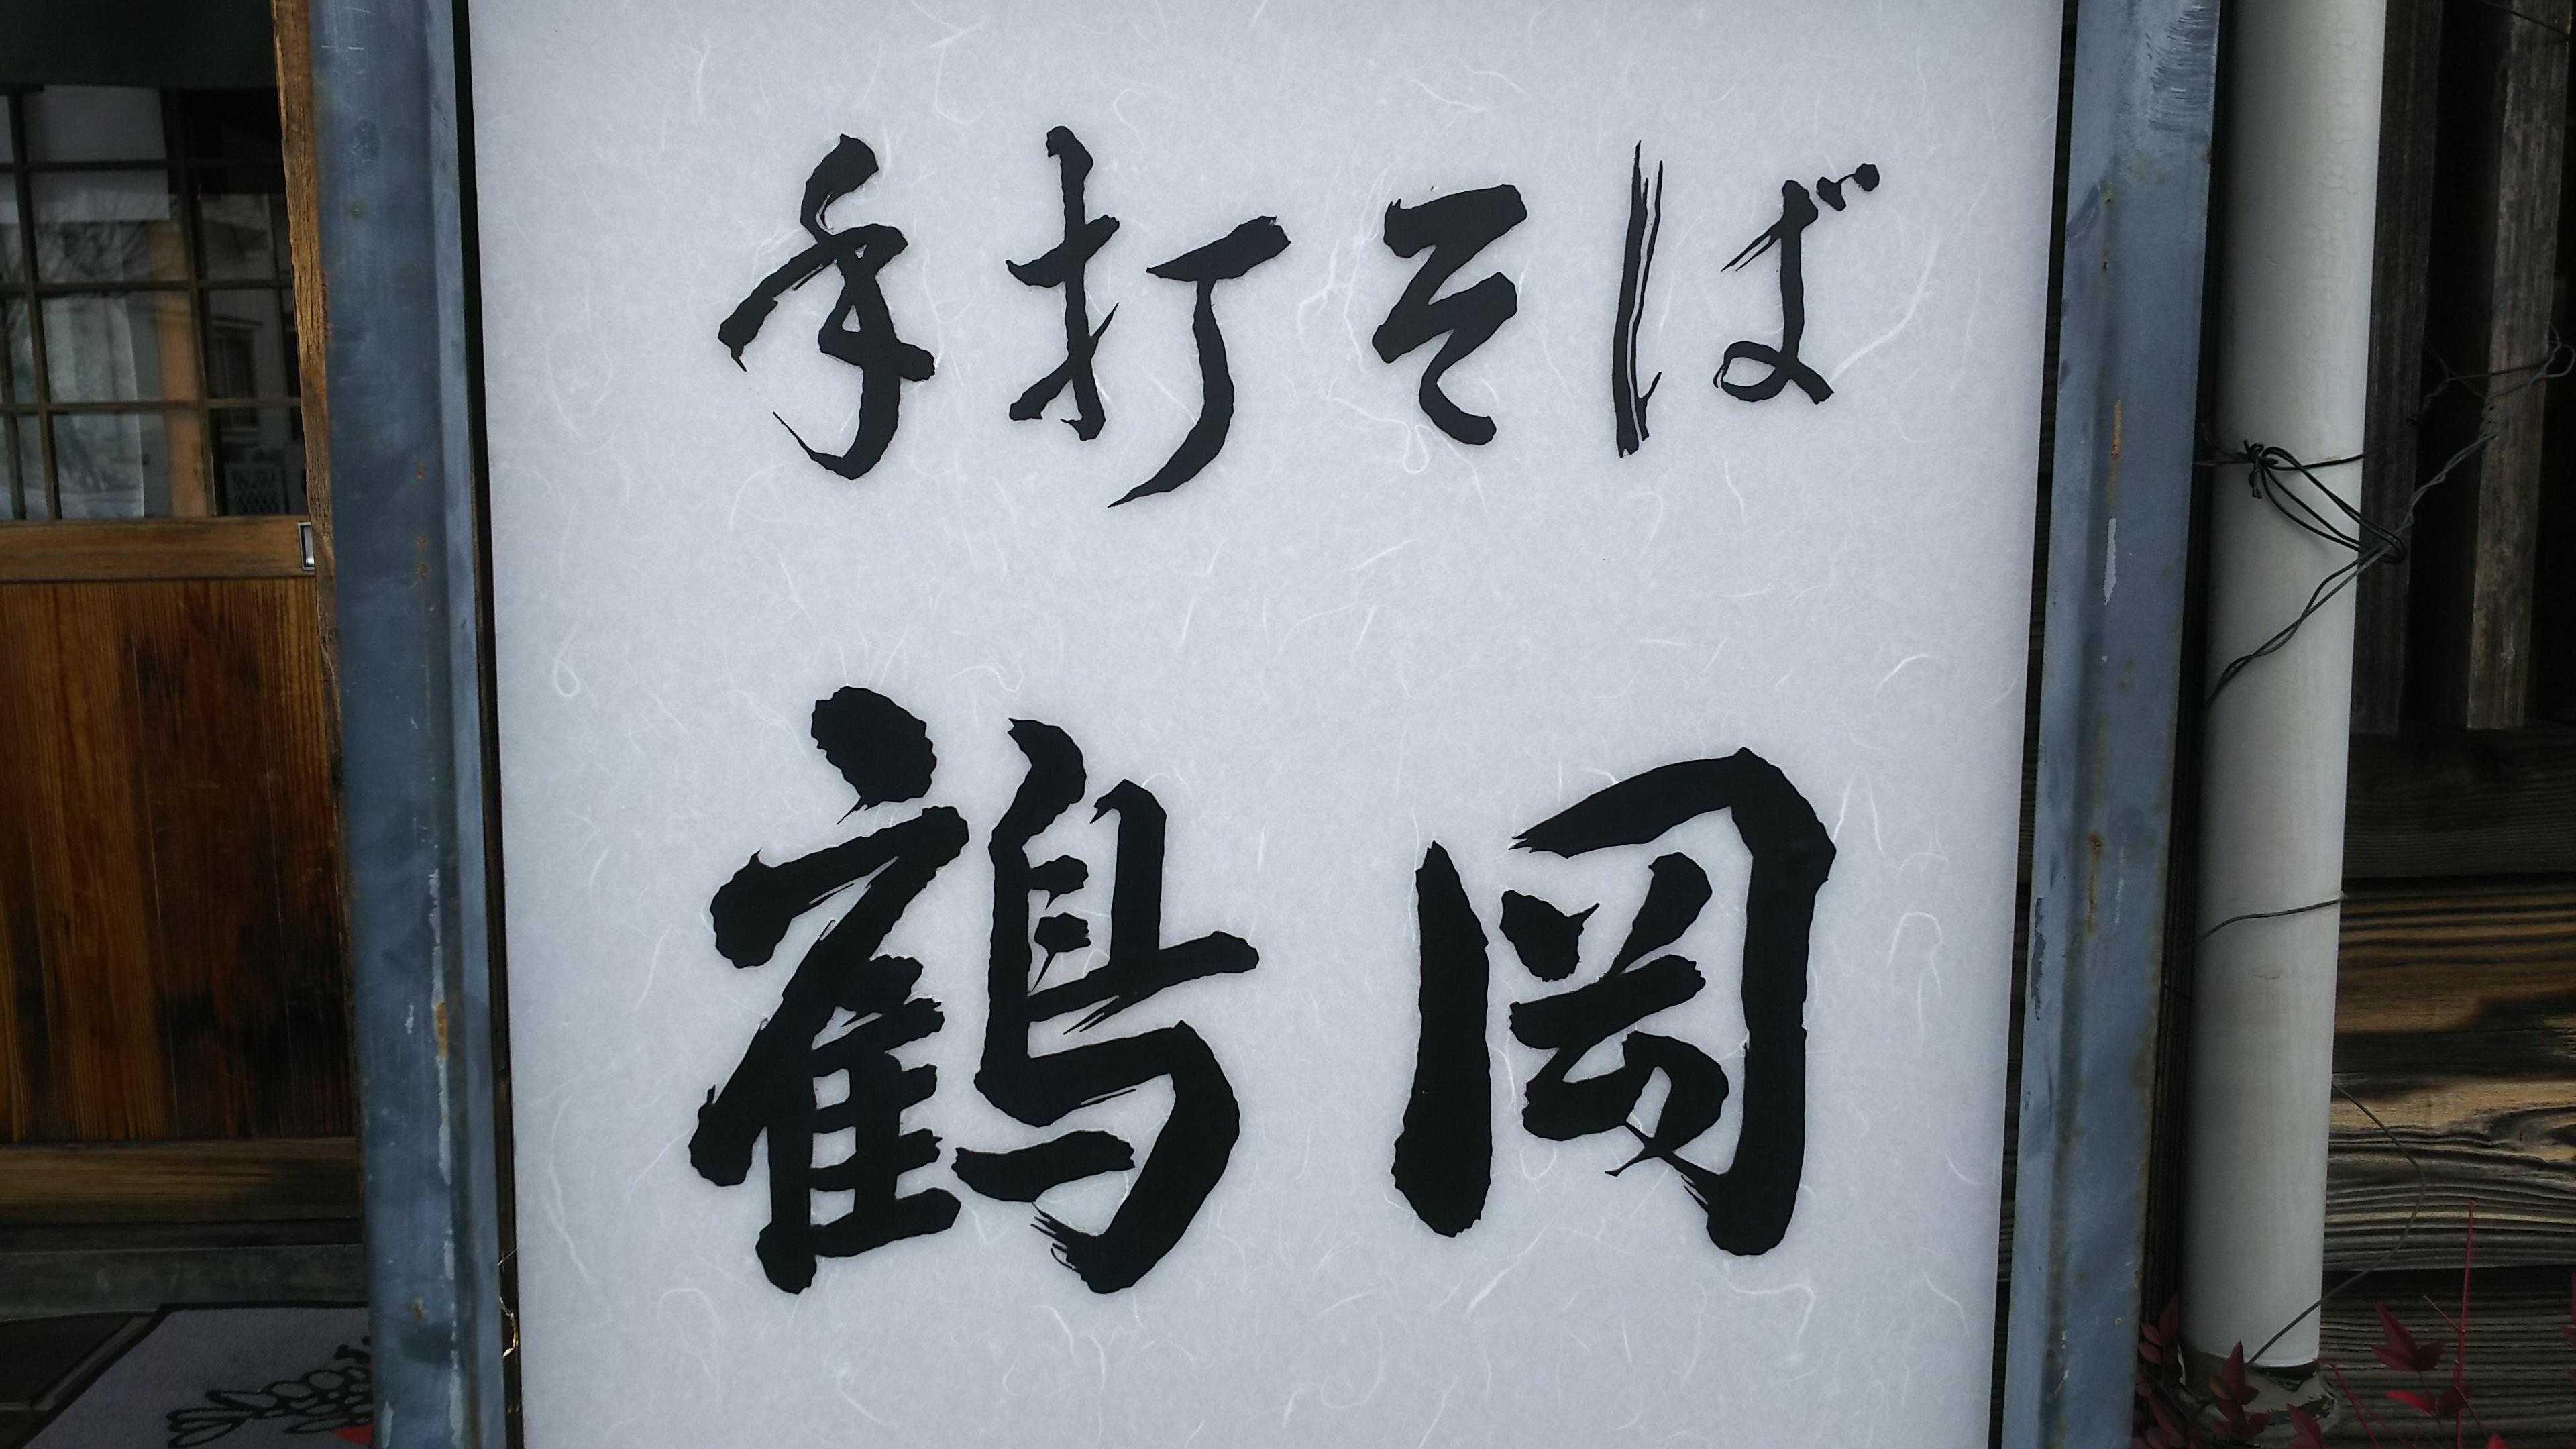 手打そば
鶴岡